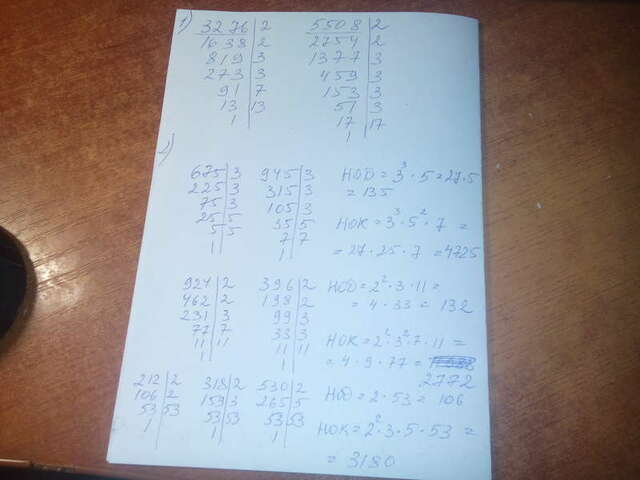 1)
3276 | 2
1638 | 2
819 | 3
273 | 3
91 | 7
13 | 13
1
5508 | 2
2754 | 2
1377 | 3
459 | 3
153 | 3
51 | 3
17 | 17
1
675 | 3
225 | 3
75 | 3
25 | 5
5 | 5
1
945 | 3
315 | 3
105 | 3
35 | 5
7 | 7
1
НОД = 3³ · 5 = 27 · 5
= 135
НОК = 3³ · 5² · 7 =
= 27 · 25 · 7 = 4725
924 | 2
462 | 2
231 | 3
77 | 7
11 | 11
1
396 | 2
198 | 2
99 | 3
33 | 3
11 | 11
1
НОД = 2² · 3 · 11 =
= 4 · 33 = 132
НОК = 2² · 3² · 7 · 11 =
= 4 · 9 · 77 =
2772
212 | 2
106 | 2
53 | 53
1
318 | 2
159 | 3
53 | 53
1
530 | 2
265 | 5
53 | 53
1
НОД = 2 · 53 = 106
НОК = 2² · 3 · 5 · 53 =
= 3180